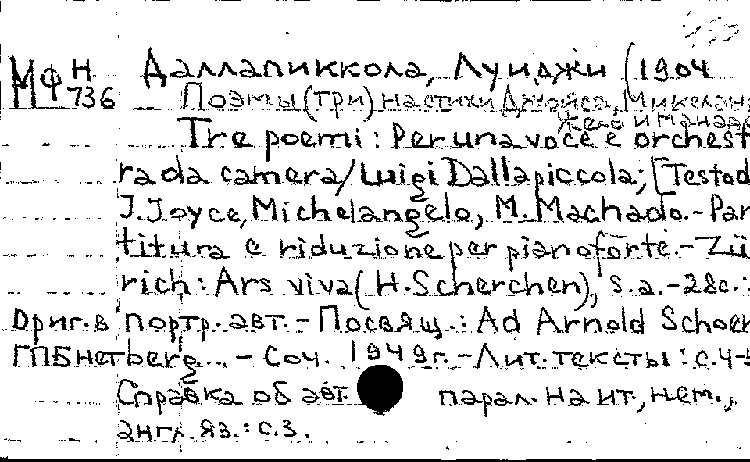 МФ Н 736 Даллапиккола, Луиджи (1904
Поэмы (три) на стихи Джойса, Микелан
жело и Мачадо
Tre poemi: Per una voce e orchest
ra da camera/Luigi Dallapiccola; [Testo d
J. Joyce, Michelangelo, M. Machado.- Par
titura e riduzione per pianoforte.- Zü
rich: Ars viva (H. Scherchen), s.a.-28c.:
Ориг. в портр. авт.- Посвящ.: Ad Arnold Schoen
ГПБ нет berg.- Соч. 1949г.- Лит. тексты: с.4-5
Справка об авт. парал. на ит., нем.,
англ. яз.: с.3.